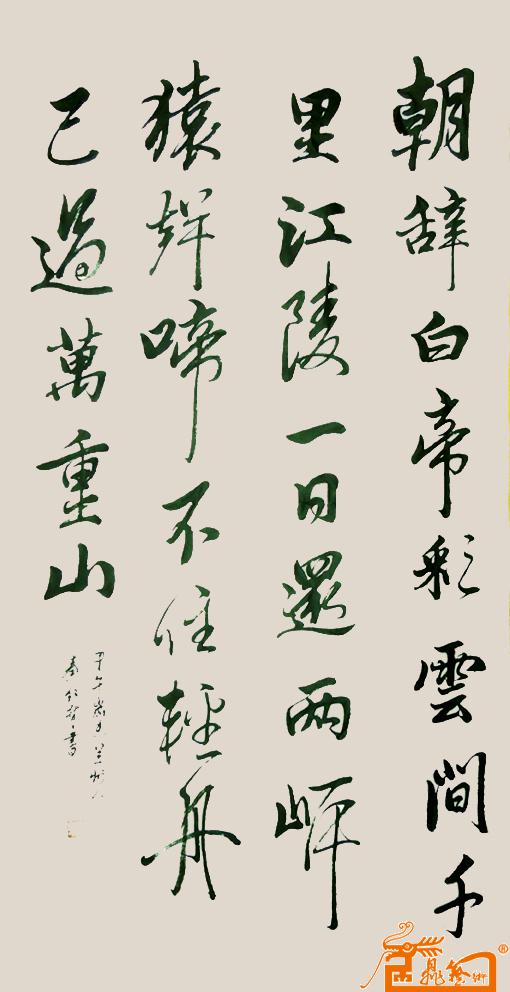 朝辞白帝彩雲間千
里江陵一日還两岸
猿声啼不住輕舟
已過萬重山
甲午歲
書